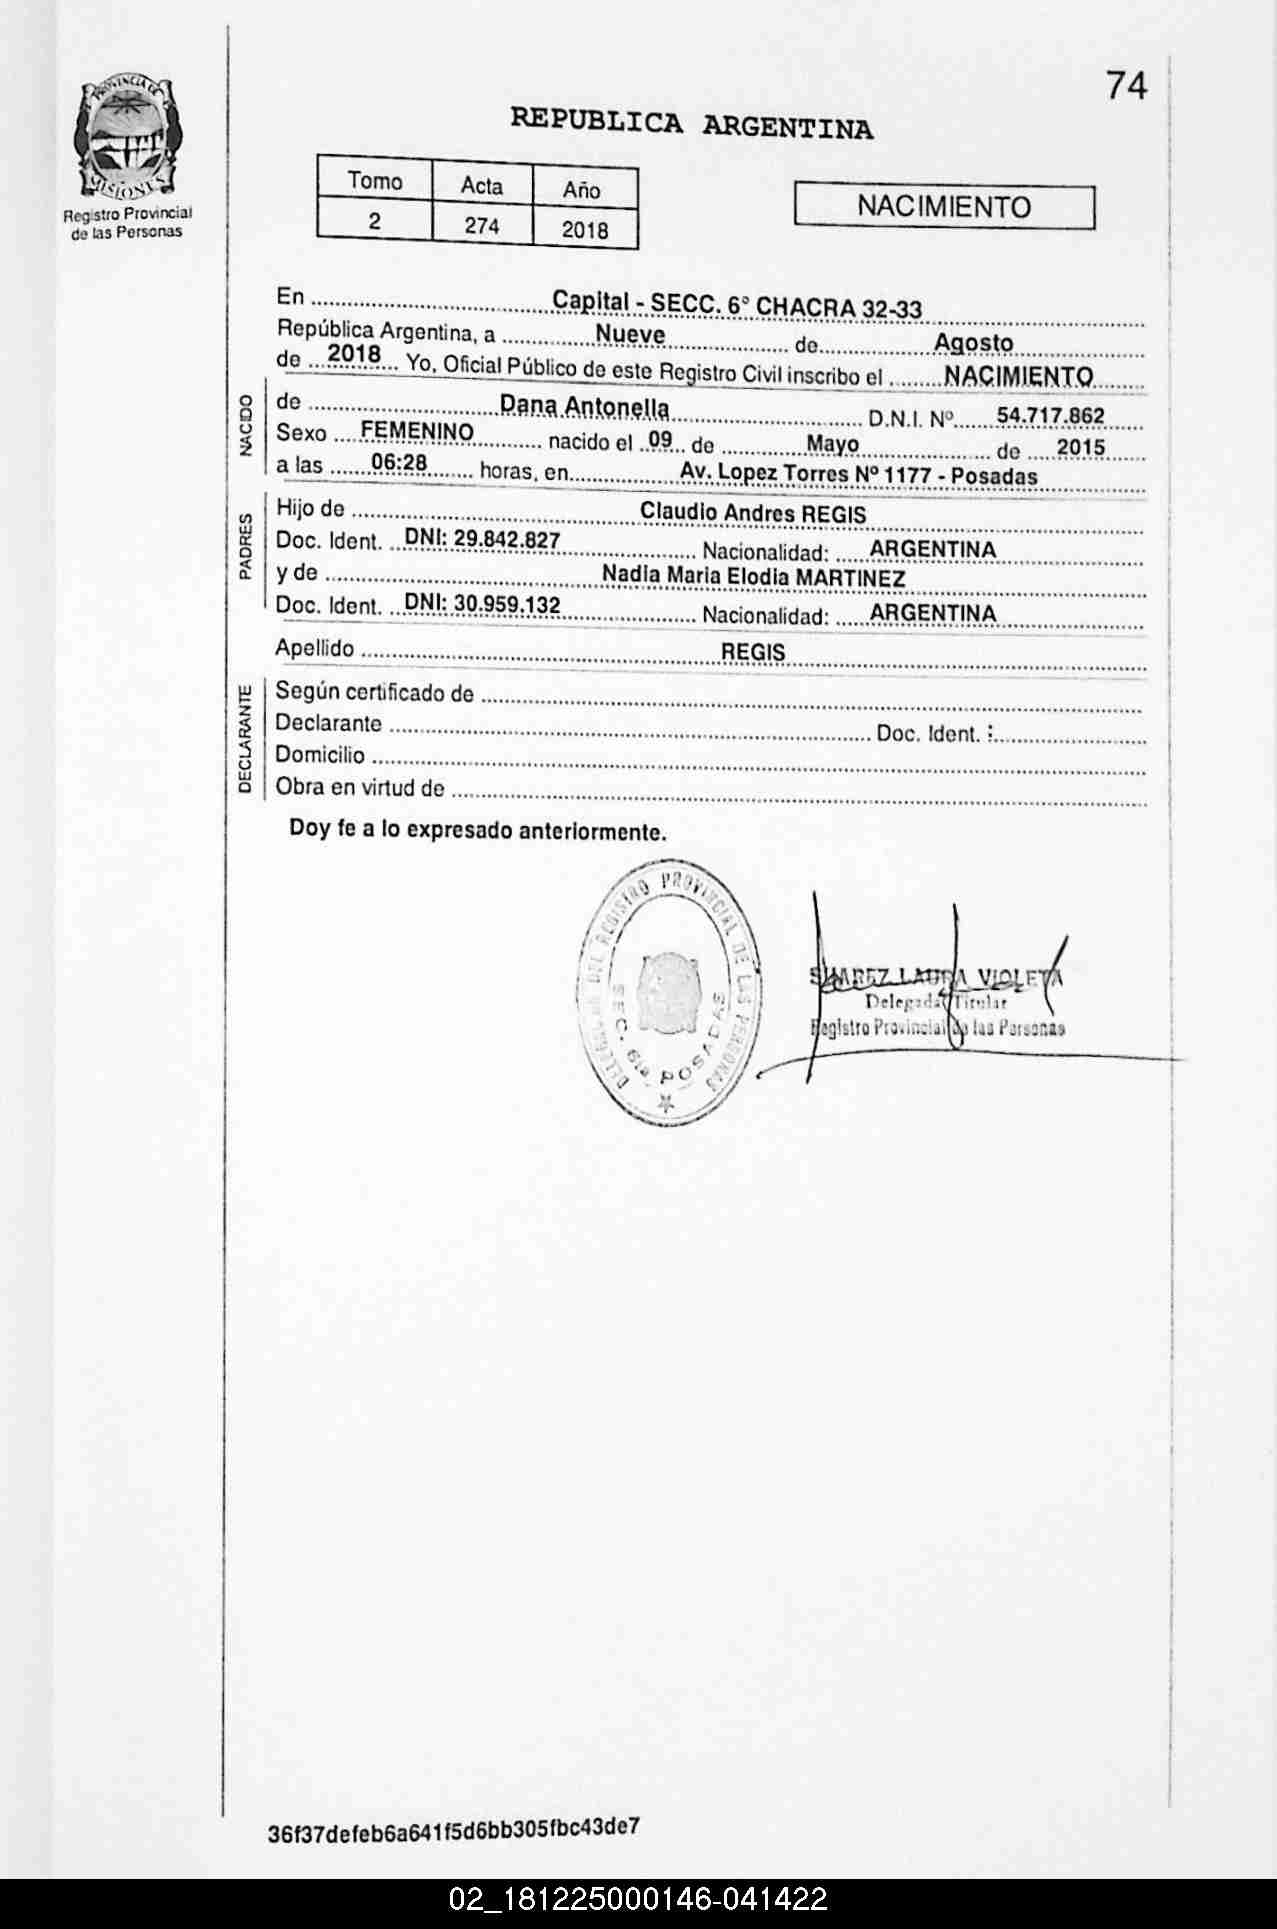 74
PROVINCIA DE
MISIONES
Registro Provincial
de las Personas
REPUBLICA ARGENTINA
Tomo Acta Año
2 274 2018
NACIMIENTO
En Capital - SECC. 6° CHACRA 32-33
República Argentina, a Nueve de Agosto
de 2018 Yo, Oficial Público de este Registro Civil inscribo el NACIMIENTO
NACIDO
de Dana Antonella D.N.I. Nº 54.717.862
Sexo FEMENINO nacido el 09 de Mayo de 2015
a las 06:28 horas, en Av. Lopez Torres Nº 1177 - Posadas
PADRES
Hijo de Claudio Andres REGIS
Doc. Ident. DNI: 29.842.827 Nacionalidad: ARGENTINA
y de Nadia Maria Elodia MARTINEZ
Doc. Ident. DNI: 30.959.132 Nacionalidad: ARGENTINA
Apellido REGIS
DECLARANTE
Según certificado de
Declarante Doc. Ident. :
Domicilio
Obra en virtud de
Doy fe a lo expresado anteriormente.
DELEGACION DEL REGISTRO PROVINCIAL DE LAS PERSONAS
SEC. 6ta. POSADAS
SUAREZ LAURA VIOLETA
Delegada Titular
Registro Provincial de las Personas
36f37defeb6a641f5d6bb305fbc43de7
02_181225000146-041422